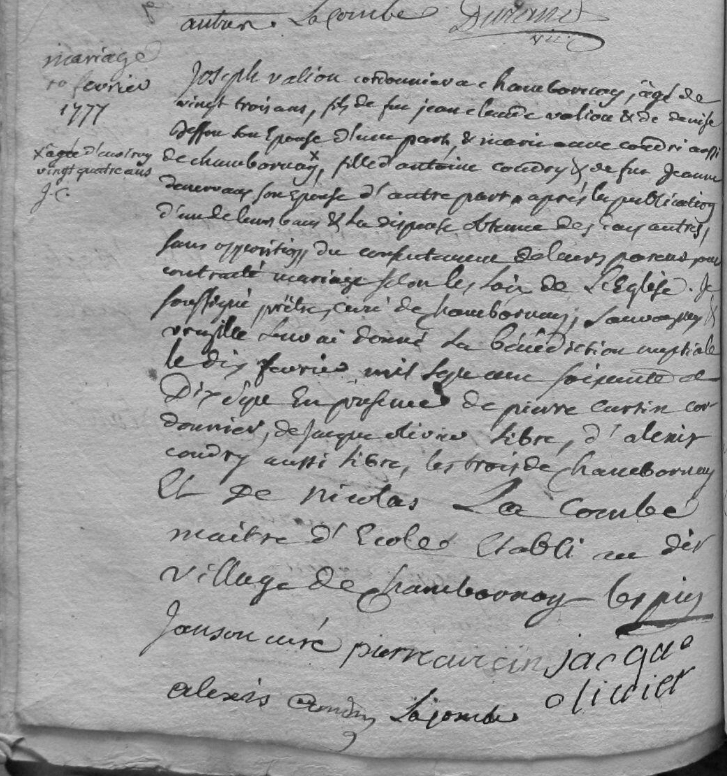 autres. La Combe
mariage
10 fevrier
1777
x agée d'environ
vingt quatre ans
J.C.
Joseph valion cordonnier a chambornay, âgé de
vingt trois ans, fils de fut jean claude valion & de denise
son Epouse d'une part, & marie anne coudri aussi
de chambornay x, fille d'antoine coudry & de fut Jeanne
son Epouse d'autre part, après la publication
d'un de leurs bans & la dispense obtenue des autres,
sans opposition du consentement de leurs parens pour
contracté mariage selon les loix de L'Eglise. Je
soussigné prêtre, curé de chambornay, &
leur ai donné la bénédiction nuptiale
le dix fevrier mil sept cent soixante et
Dix sept En présence de pierre curtin cor
donnier, de Jacque olivier libre, d'alexis
coudry aussi libre, les trois de chambornay
Et de nicolas La Combe
maitre d'Ecole Etabli au dit
village de chambornay les pin
Janson curé pierre jacque
olivier
alexis coudry Lacombe